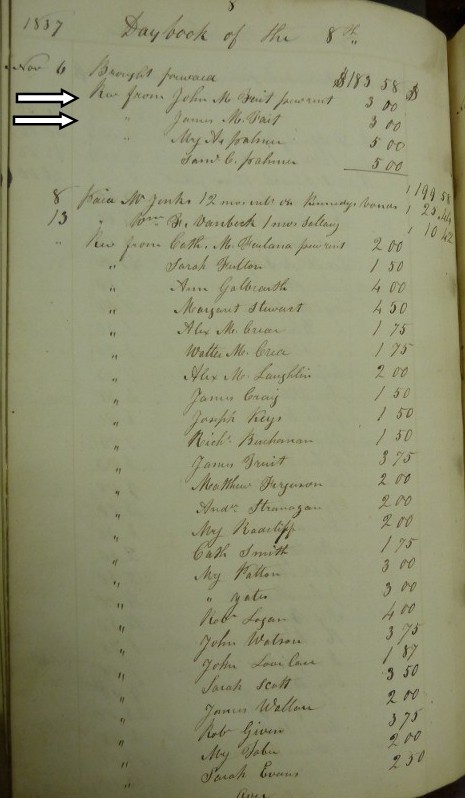 8
1837 Daybook of the 8th
Nov 6 Brought forward $183 58 $
Rec from John M. Fait pew rent 3 00
" James M. Fait 3 00
" My As palmer 5 00
Saml C. palmer 5 00
199 58
8 Paid Mr Jenks 12 months on Kennedys bonds 23
13 " Wm 1 mos Sallary 10 42
" Rec from Cath. M. pew rent 2 00
" Sarah Fulton 1 50
" Ann Galbreath 4 00
" Margaret Stewart 4 50
" Alex M. Crear 1 75
" Walter M. Crea 1 75
" Alex M. Laughlin 2 00
" James Craig 1 50
" Joseph Keys 1 50
" Richd Buchanan 1 50
" James Fruit 3 75
" Matthew Ferguson 2 00
" Andw Stranagan 2 00
" My Radcliff 2 00
" Cath Smith 1 75
" My Patton 3 00
" " yates 3 00
" Robt Logan 4 00
" John Watson 3 75
" John 1 87
" Sarah Scott 3 50
" James Wallace 2 00
" Robt Given 3 75
" My 2 00
" Sarah Evans 2 50
Over